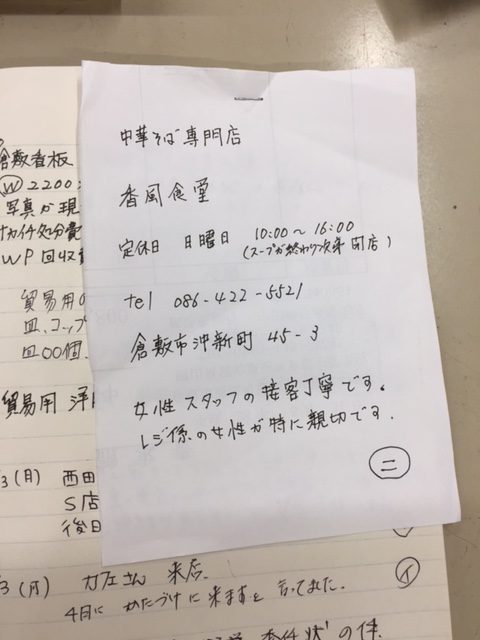 中華そば専門店
香風食堂
定休日 日曜日 10:00～16:00
(スープが終わり次第 閉店)
tel 086-422-5521
倉敷市沖新町 45-3
女性スタッフの接客丁寧です。
レジ係の女性が特に親切です.
ニ
倉敷看板
W 2200
写真が現
処分費
WP 回収
貿易用の
皿、コップ
皿00個、
貿易用 洋
3(月) 西田
S店
後日
イ
3(月) カフェさん 来店.
4月に かたづけに来ますと 言ってました.
の件